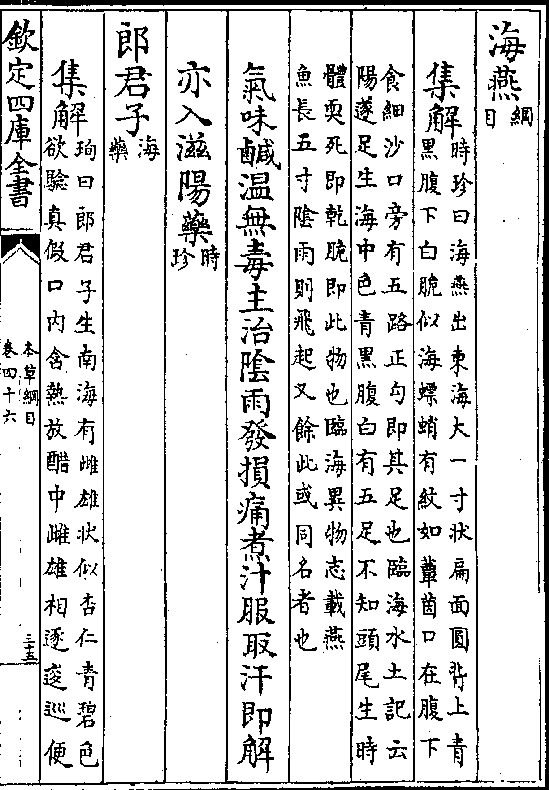 海燕綱目
集解時珍曰海燕出東海大一寸狀扁面圓背上青
黑腹下白脆似海螵蛸有紋如蕈茵口在腹下
食細沙口旁有五路正勾即其足也臨海水土記云
陽遂足生海中色青黑腹白有五足不知頭尾生時
體耎死即乾脆即此物也臨海異物志載燕
魚長五寸陰雨則飛起丈餘此或同名者也
氣味鹹温無毒主治陰雨發損痛煮汁服取汗即解
亦入滋陽藥時珍
郎君子海藥
集解珣曰郎君子生南海有雌雄狀似杏仁青碧色
欲驗真假口内含熱放醋中雌雄相逐逡巡便
欽定四庫全書
本草綱目
卷四十六
三十五